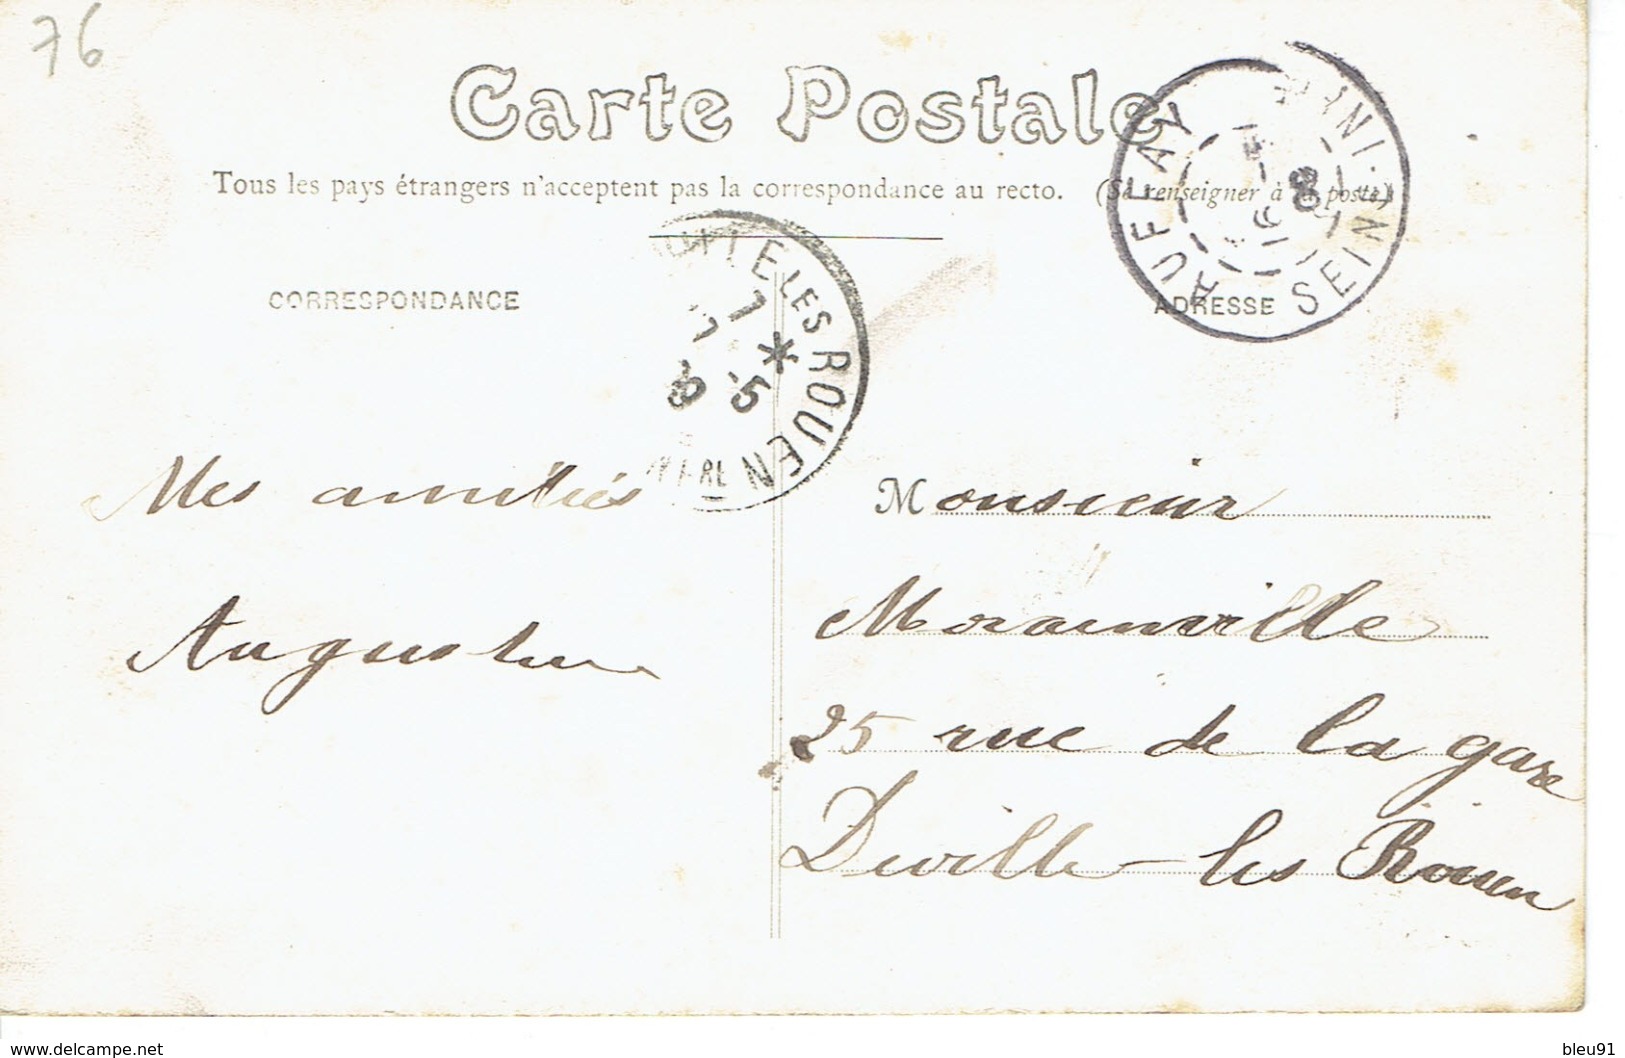 76
Carte Postale
Tous les pays étrangers n'acceptent pas la correspondance au recto. (Se renseigner à la poste)
CORRESPONDANCE
ADRESSE
AUFFAY
SEINE-INFRE
LES ROUEN
7 * 5
Mes amitiés
Augustine
Monsieur
Morainville
25 rue de la gare
Deville-les Rouen
www.delcampe.net
bleu91